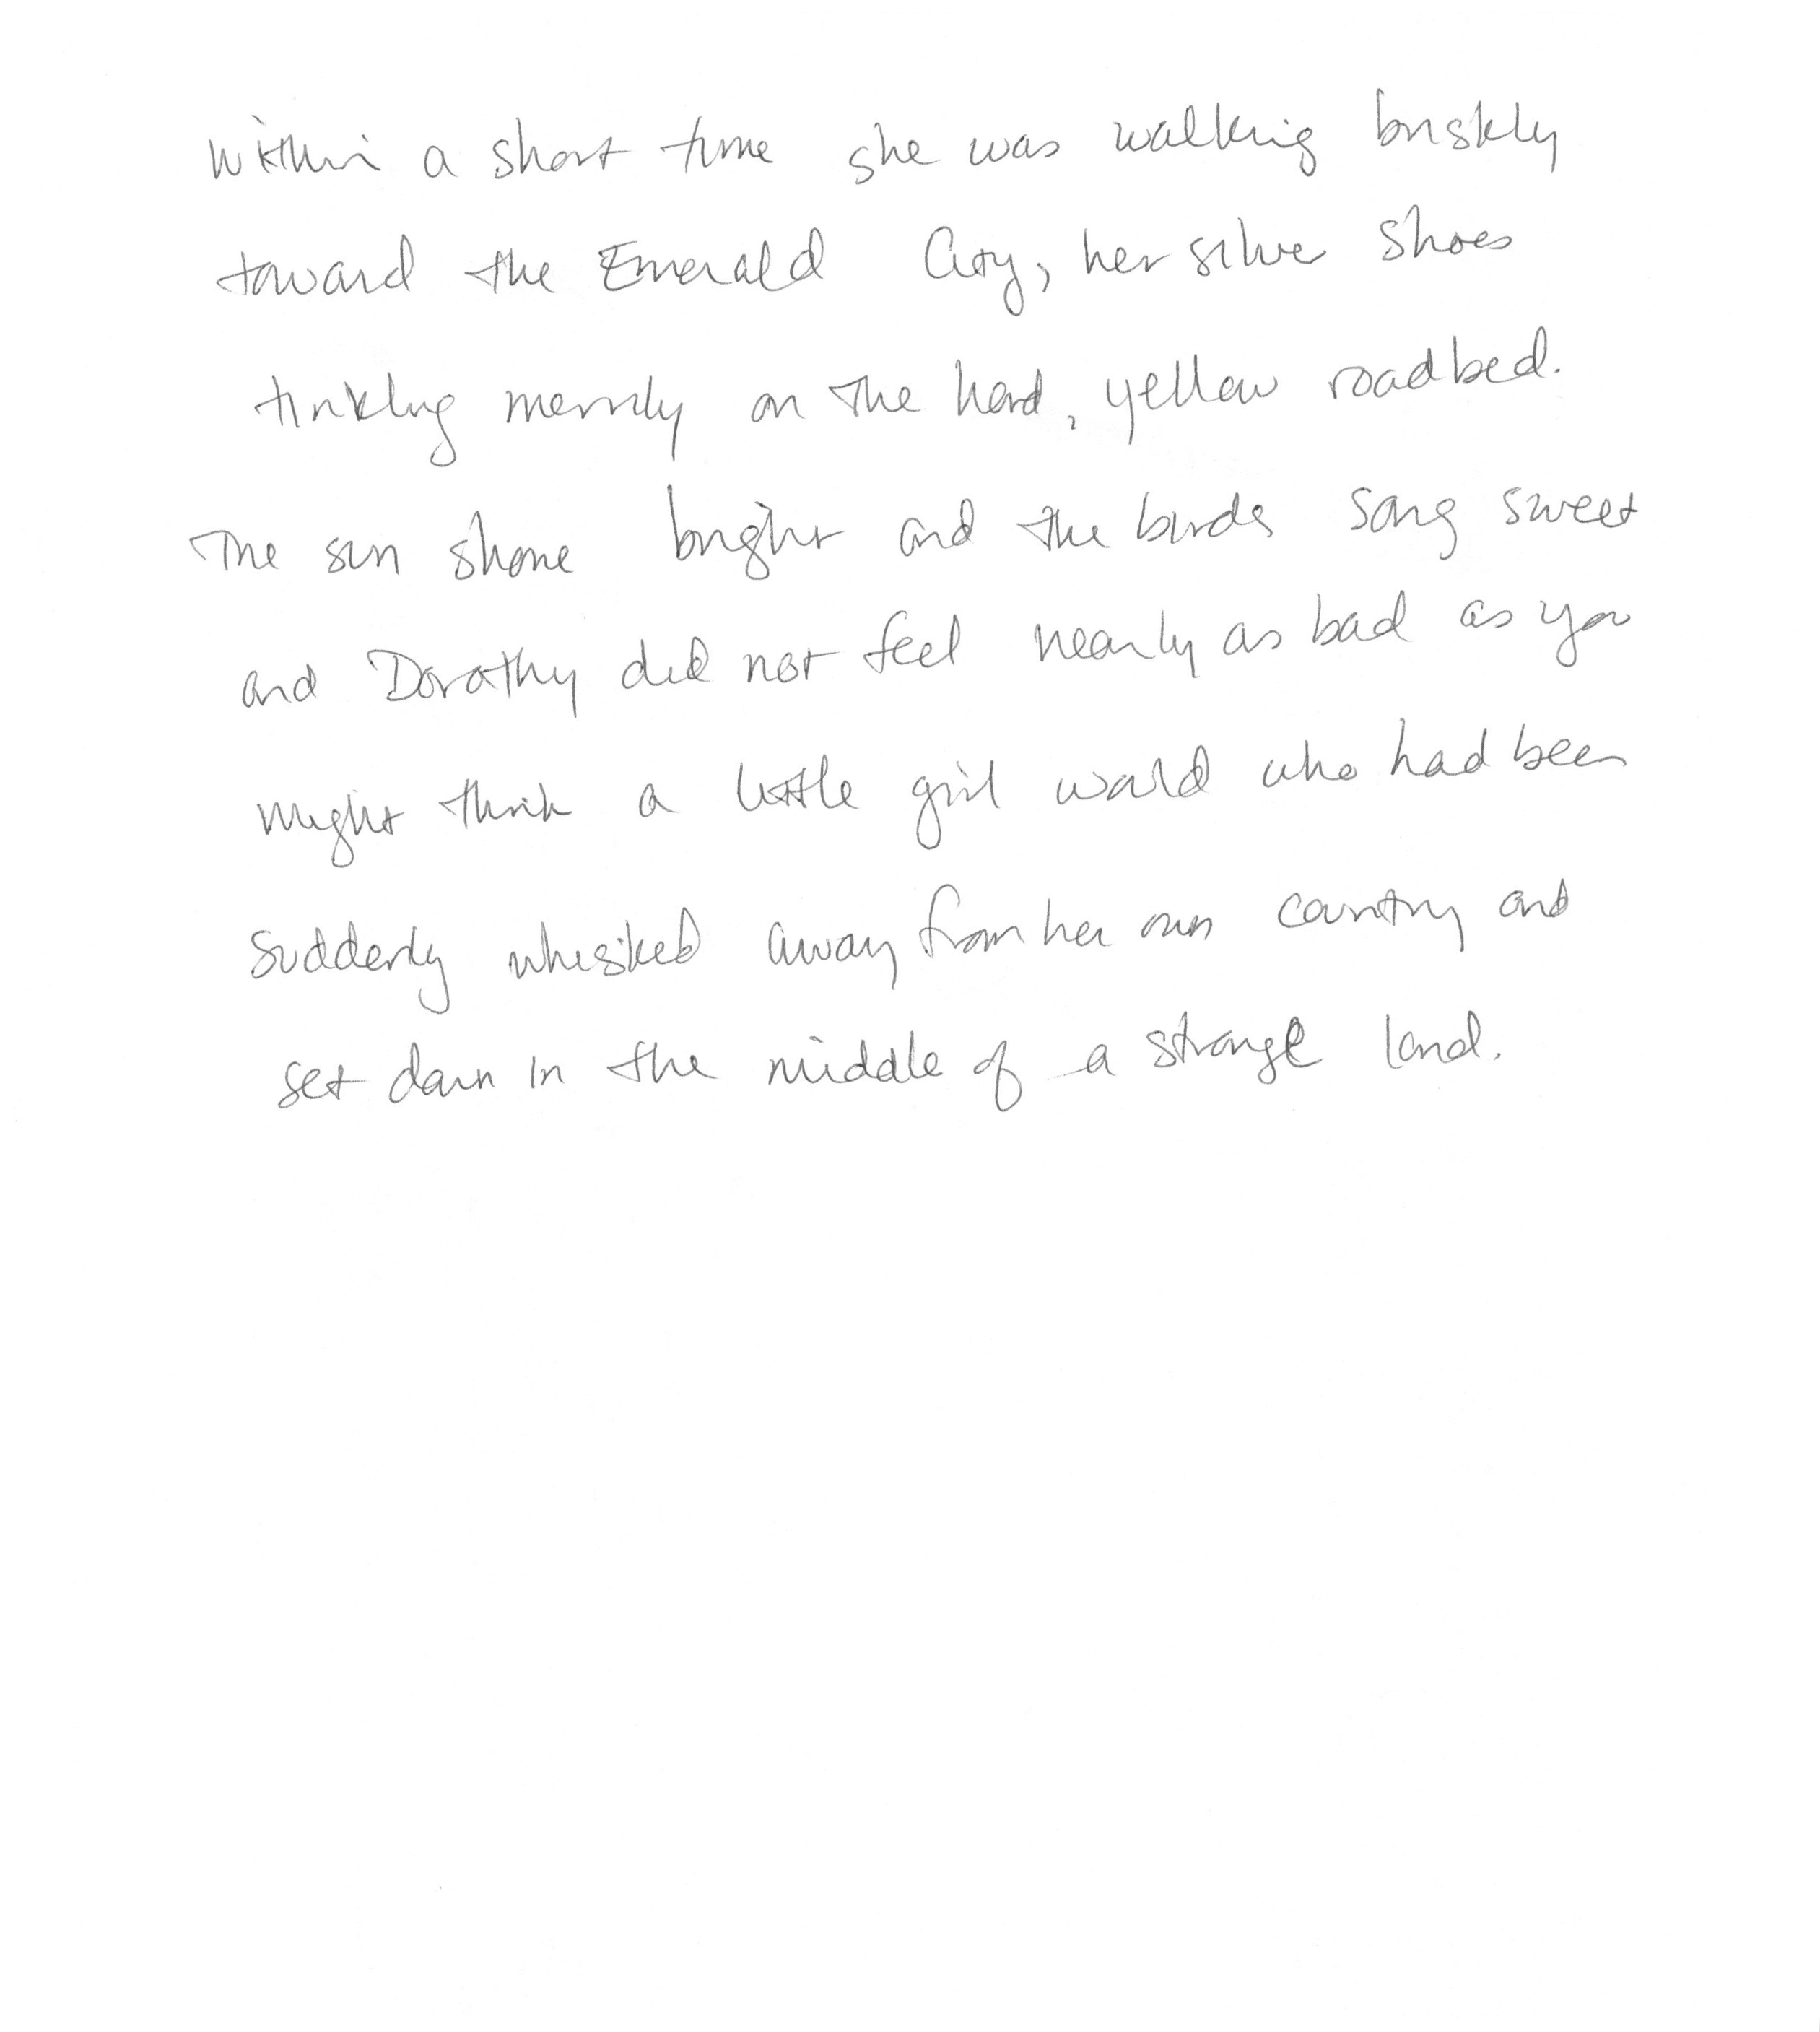 Within a short time she was walking briskly
toward the Emerald City, her silver shoes
tinkling merrily on the hard, yellow roadbed.
The sun shone bright and the birds sang sweet
and Dorothy did not feel nearly as bad as you
might think a little girl would who had been
suddenly whisked away from her own country and
set down in the middle of a strange land.